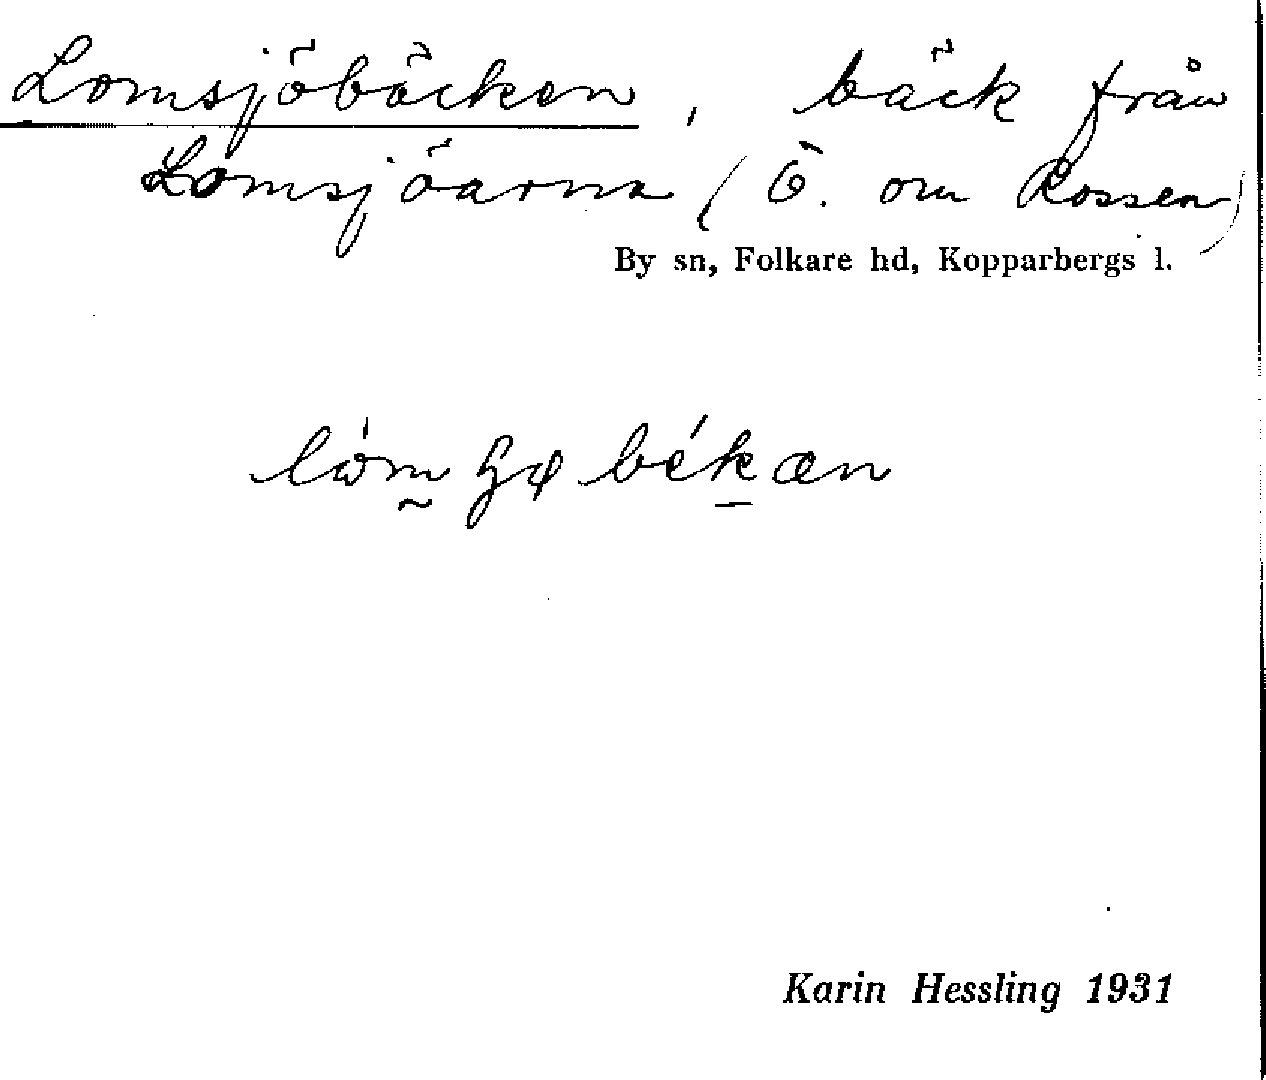 Lomsjöbäcken, bäck från
Lomsjöarna (Ö. om Rossen)
By sn, Folkare hd, Kopparbergs l.
Karin Hessling 1931